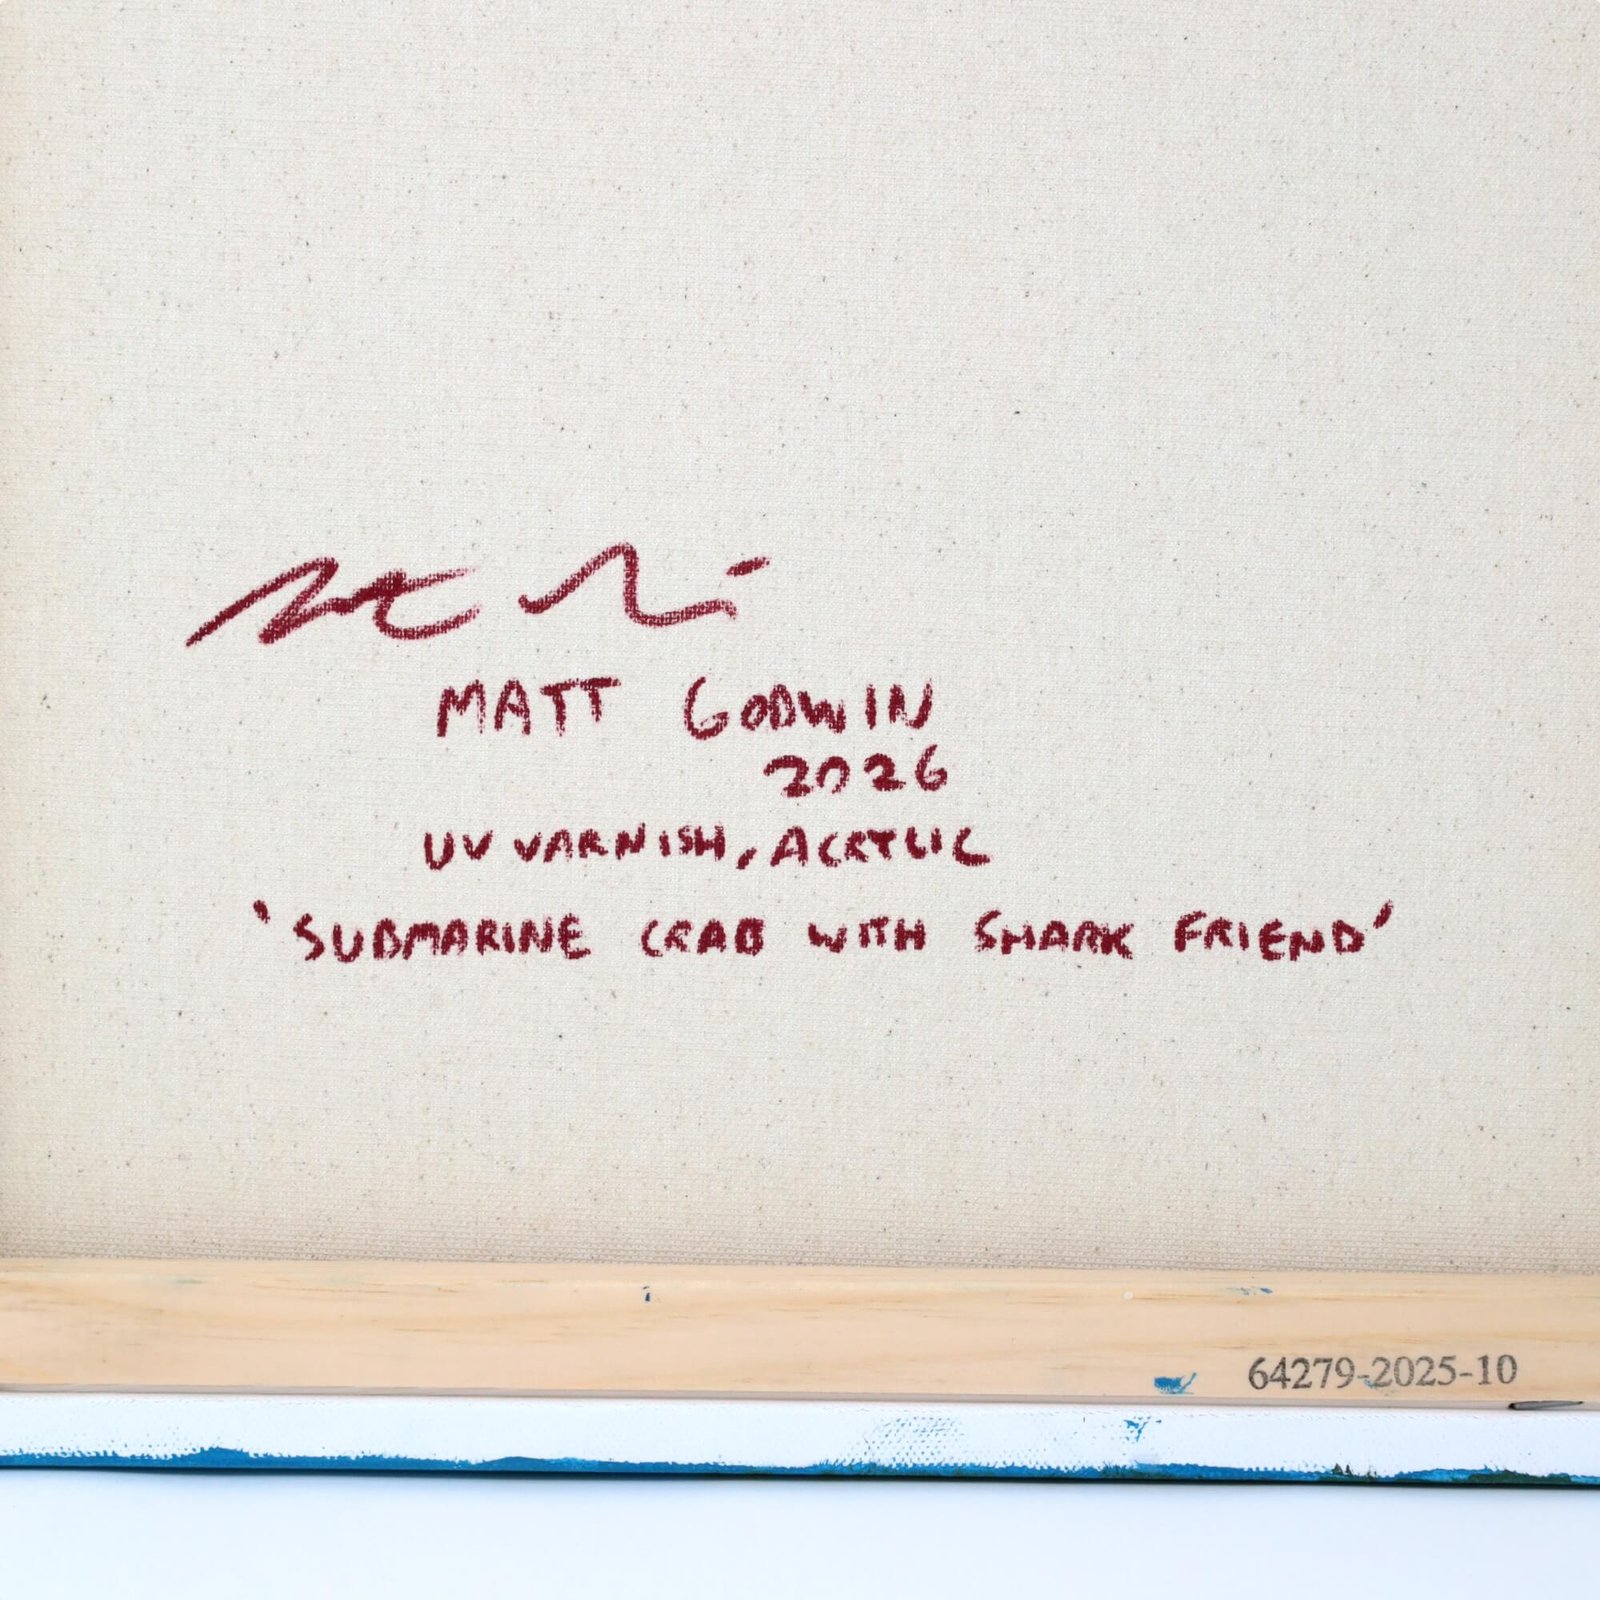 MATT GODWIN
2026
UV VARNISH, ACRYLIC
'SUBMARINE CRAB WITH SHARK FRIEND'
64279-2025-10